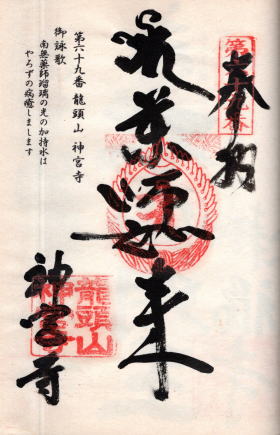 奉拝
薬師如来
神宮寺
第六十九番 龍頭山 神宮寺
御詠歌
南無薬師瑠璃の光の加持水は
やろずの病癒しまします
龍頭山
神宮寺